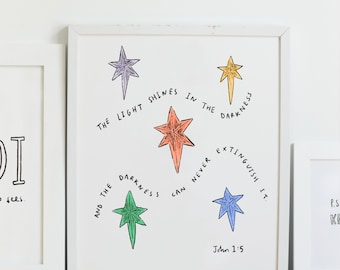 THE LIGHT SHINES IN THE DARKNESS
AND THE DARKNESS CAN NEVER EXTINGUISH IT.
John 1:5